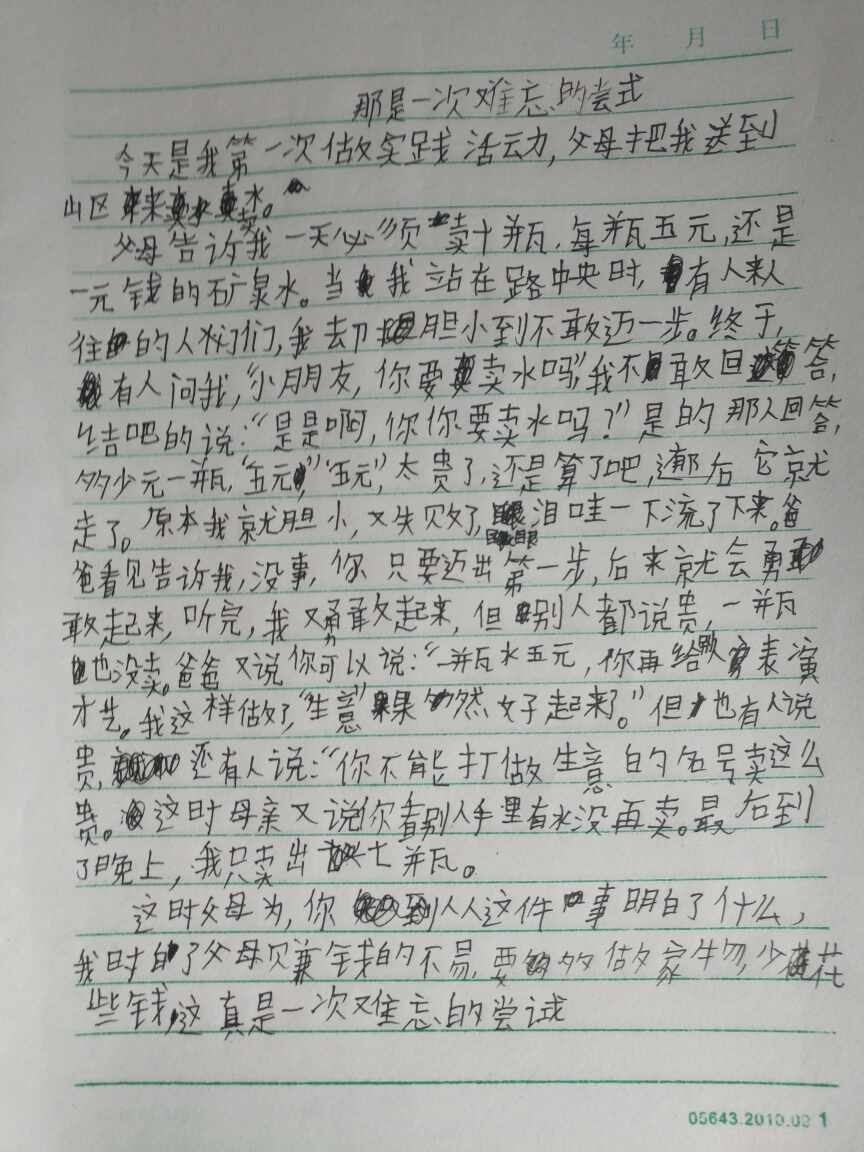 年 月 日
那是一次难忘的尝式
今天是我第一次做实践活动,父母把我送到
山区来卖水。
父母告诉我一天必须卖十瓶,每瓶五元,还是
一元钱的矿泉水。当我站在路中央时,有人来人
往的人们,我却胆小到不敢迈一步。终于,
有人问我,“小朋友,你要卖水吗”,我不敢回答,
结吧的说:“是是啊,你你要卖水吗?”是的那人回答,
多少元一瓶,“五元”,“五元”,太贵了,还是算了吧,后它就
走了。原本我就胆小,又失败了,眼泪哇一下流了下来。爸
爸看见告诉我,没事,你只要迈出第一步,后来就会勇
敢起来,听完,我又勇敢起来,但别人都说贵,一瓶
也没卖。爸爸又说你可以说:“一瓶水五元,你再给表演
才艺。我这样做了,“生意”果然好起来了。”但也有人说
贵,还有人说:“你不能打做生意的名号卖这么
贵。这时母亲又说你看别人手里有水没再卖。最后到
了晚上,我只卖出七瓶。
这时父母为,你从这件事明白了什么,
我明白了父母赚钱的不易,要多做家务,少花
些钱,这真是一次难忘的尝试
05643.2010.09 1